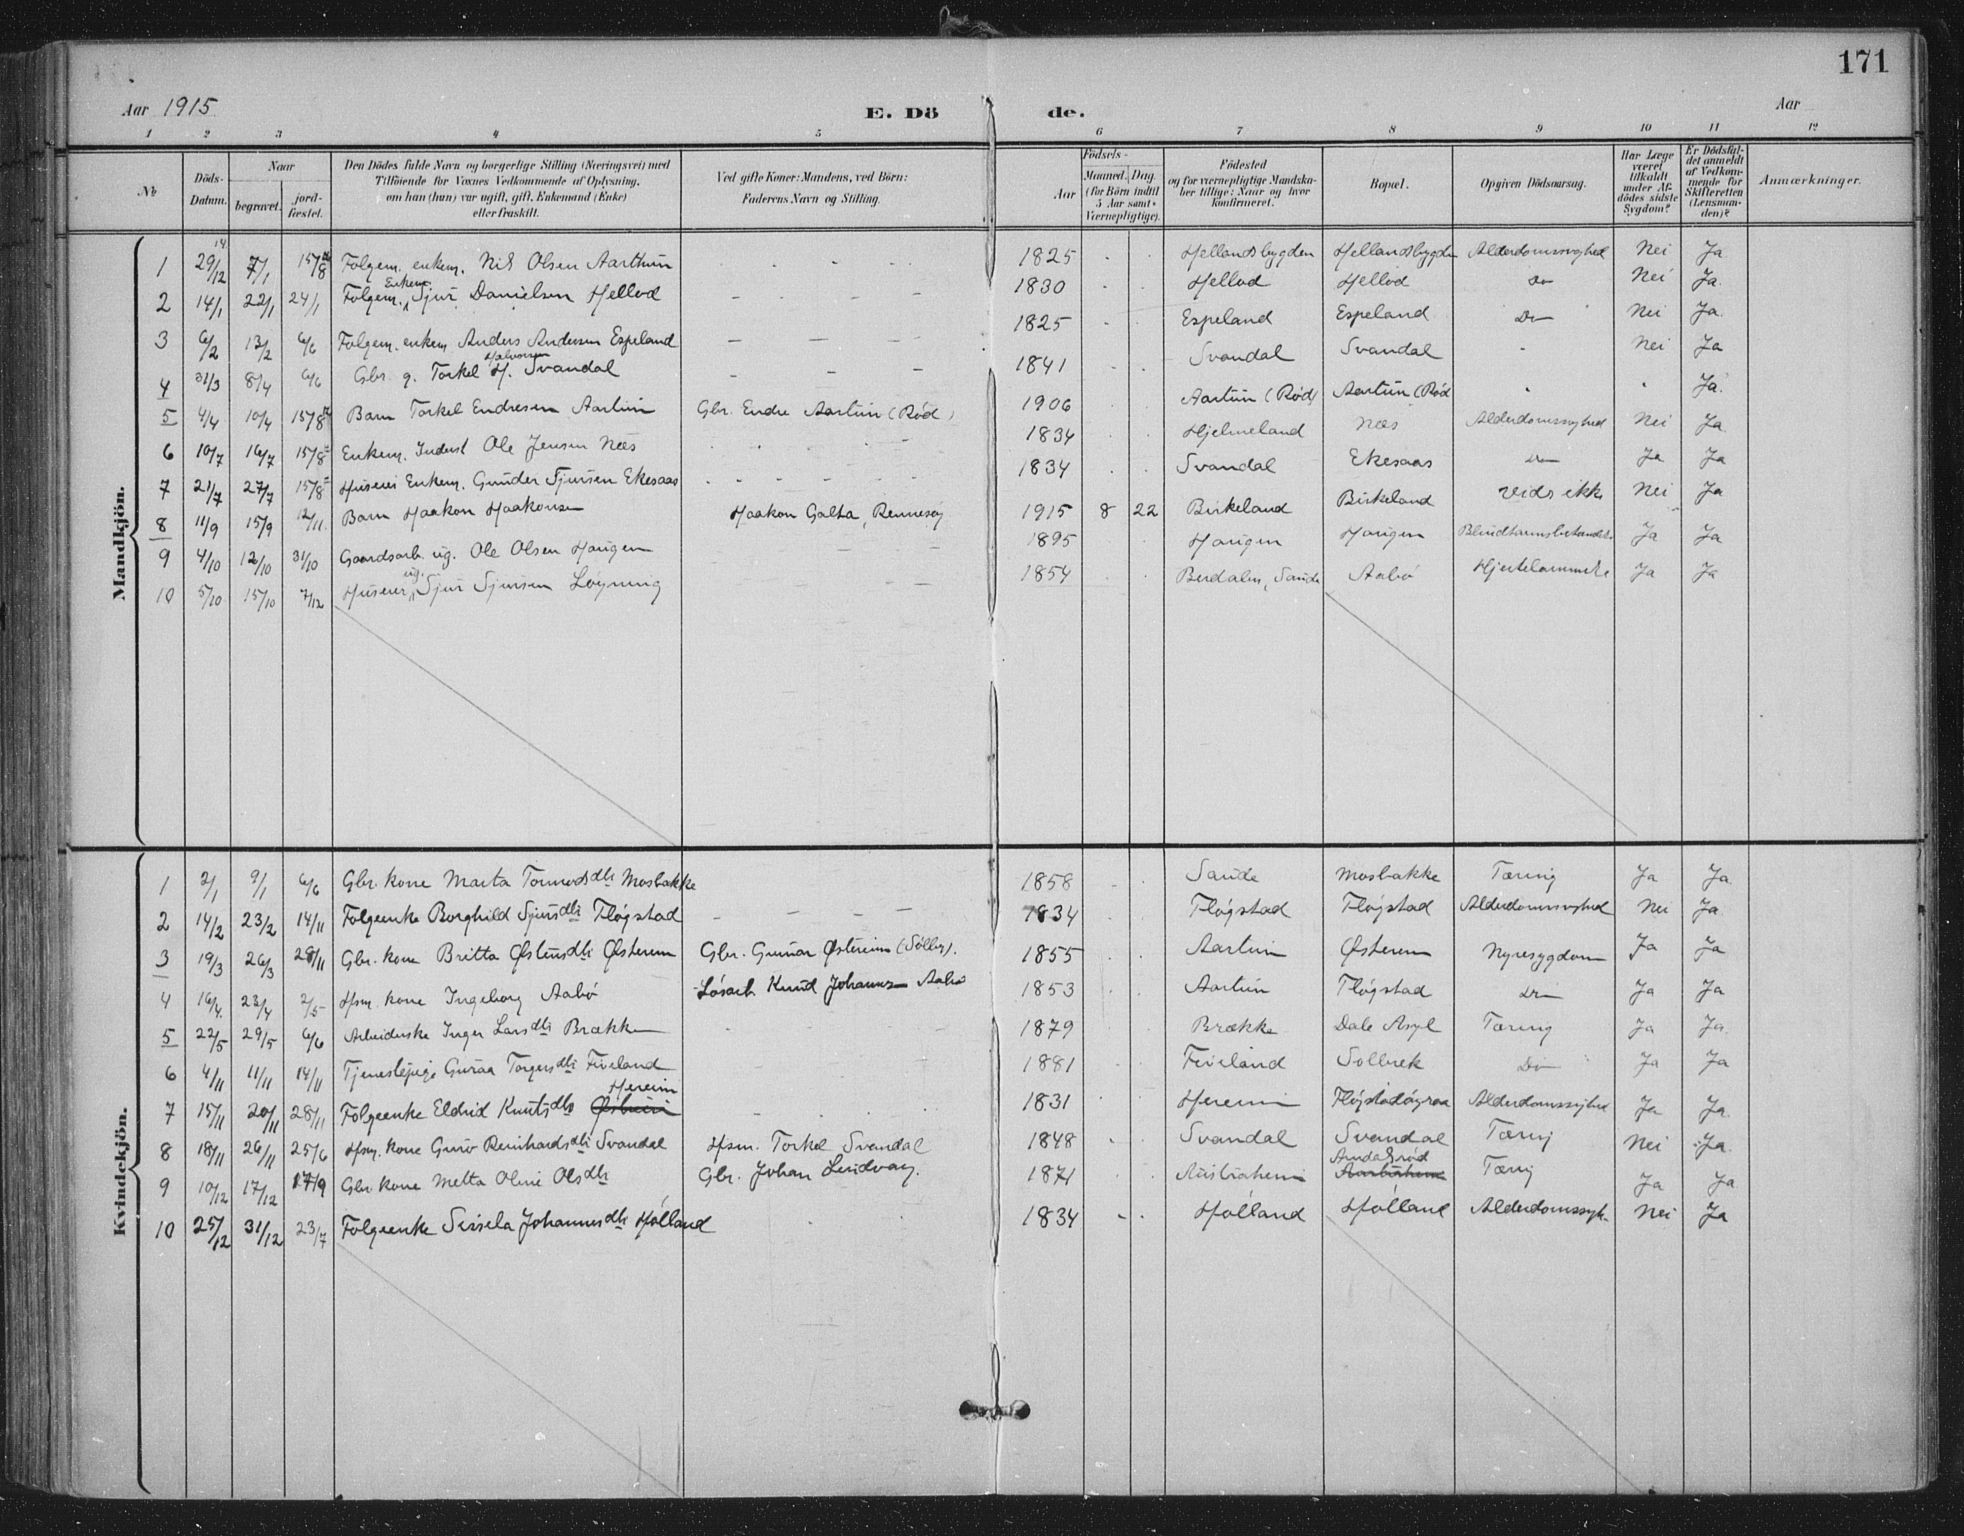 171
Aar 1915 E. Dö de. Aar
1 2 3 4 5 6 7 8 9 10 11 12
No
Döds-Datum.
Naar
begravet.
jord-fæstet.
Den Dödes fulde Navn og borgerlige Stilling (Næringsvei) med
Tilföiende for Voxnes Vedkommende af Oplysning,
om han (hun) var ugift, gift, Enkemand (Enke)
eller fraskilt.
Ved gifte Koner: Mandens, ved Börn:
Faderens Navn og Stilling.
Födsels-
Aar
Maaned. Dag.
(for Börn indtil
5 Aar samt
Værnepligtige).
Födested
og for værnepligtige Mandska-
ber tillige: Naar og hvor
konfirmeret.
Bopæl.
Opgiven Dödsaarsag.
Har Læge
været
tilkaldt
under Af-
dödes sidste
Sygdom?
Er Dödsfal-
det anmeldt
af Vedkom-
mende for
Skifteretten
(Lensman-
den)?
Anmærkninger.
Mandkjön.
1 29/12 14 7/1 15/8 Folgem. enkem. Nils Olsen Aarthun - - - - 1825 Hellandsbygden Hellandsbygden Alderdomssvghed Nei Ja
2 14/1 22/1 24/1 Folgem. Enkem. Sjur Danielsen Hellod - - - - 1830 Hellod Hellod Do Nei Ja
3 6/2 13/2 6/6 Folgem. enkem. Anders Andersen Espeland - - - - 1825 Espeland Espeland Do Nei Ja
4 31/3 8/4 6/6 Gbr. g. Torkel H. Halvorsen Svandal - - - - 1841 Svandal Svandal - Nei Ja
5 4/4 10/4 15/8 Barn Torkel Endresen Aartun Gbr. Endre Aartun (Rød) 1906 Aartun (Rød) Aartun (Rød - - Ja
6 10/7 16/7 15/8 Enkem. Inderst Ole Jensen Næs 1834 Hjelmeland Næs Alderdomssvghed Nei Ja
7 21/7 27/7 15/8 Enkem. Gunder Sjursen Ekesaas 1834 Svandal Ekesaas Do Ja Ja
8 11/9 15/9 12/11 Barn Haakon Haakonsen Haakon Galta, Rennesøy 1915 8 22 Birkeland Birkeland vides ikke Nei Ja
9 4/10 12/10 31/10 Gaardsarb. ug. Ole Olsen Haugen - - - 1895 Haugen Haugen Ja Ja
10 5/10 15/10 7/12 ug. Sjur Sjursen Løgning 1854 Sande Aabø Ja Ja
Kvindekjön.
1 2/1 9/1 6/6 Gbr. kone Marta Tormodsdtr Mosbakke 1858 Sande Mosbakke Tæring Ja Ja
2 14/2 23/2 14/11 Folgeenke Borghild Sjursdtr Fløgstad - - - - 1834 Fløgstad Fløgstad Alderdomssvghed Nei Ja
3 19/3 26/3 28/11 Gbr. kone Britta Østensdtr Østerem Gbr. Gunnar Østreim 1855 Aartun Østerem Nyresygdom Ja Ja
4 16/4 23/4 2/5 Hsm. kone Ingeborg Aabø Løsarb. Knud Johannes Aabø 1853 Aartun Fløgstad Do Ja Ja
5 22/5 29/5 6/6 Arbeiderske Inger Larsdtr Brække 1879 Brække Dale Asyl Tæring Ja Ja
6 4/11 11/11 14/11 Tjenestepige Guraa Torgersdtr Fiveland 1881 Fiveland Solbrek Do Ja Ja
7 15/11 20/11 28/11 Folgeenke Eldrid Knutsdtr Hereim 1831 Hereim Alderdomssvghed Ja Ja
8 18/11 26/11 25/6 Hsm. kone Guro Reinhardsdtr Svandal Hsm. Torkel Svandal 1848 Svandal Svandal Tæring Nei Ja
9 10/12 17/12 17/9 Gbr. kone Metta Oline Olsdtr Gbr. Johan Lindvang. 1871 Tæring Ja Ja
10 25/12 31/12 23/7 Folgeenke Sissela Johannesdtr Hølland 1834 Hølland Hølland Alderdomssvgh. Nei Ja